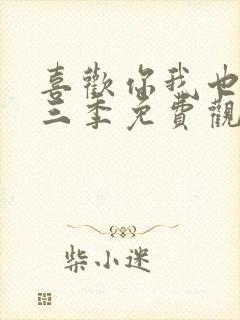 喜歡你我也
三季免費觀
柴小迷